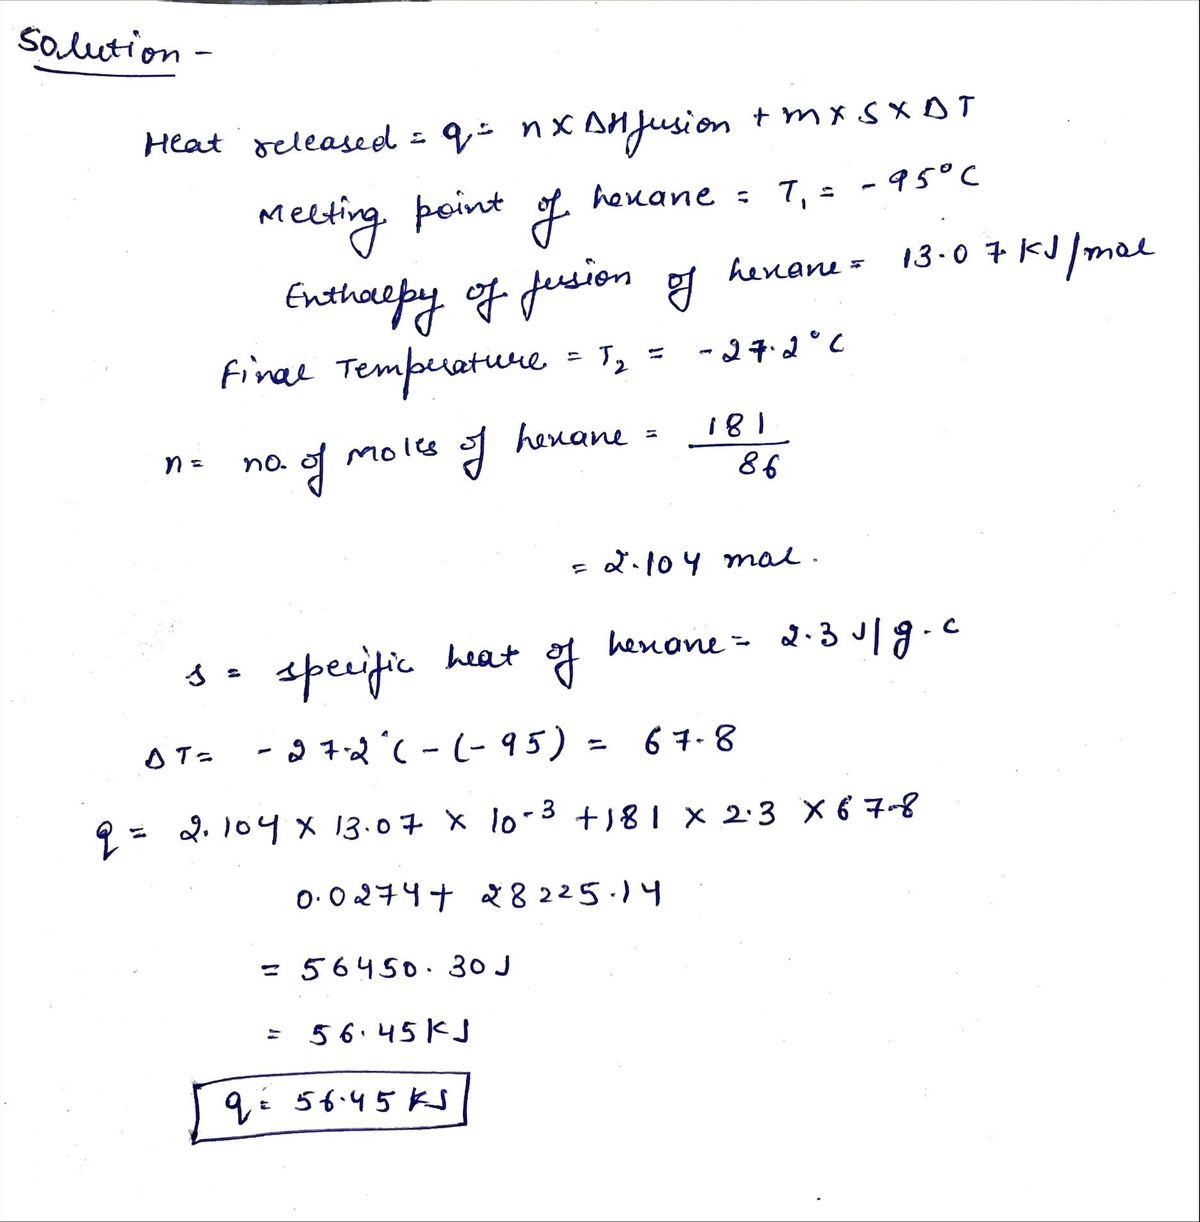 Solution -
Heat released = q = n X ΔHfusion + m x s x ΔT
Melting point of hexane = T₁ = -95°C
Enthalpy of fusion of hexane = 13.07 KJ/mol
Final Temperature = T₂ = -27.2°C
n = no. of moles of hexane = 181/86
= 2.104 mol.
s = specific heat of hexane = 2.3 J/g.c
ΔT = -27.2°C - (-95) = 67.8
q = 2.104 x 13.07 x 10⁻³ + 181 x 2.3 x 67.8
0.0274 + 28225.14
= 56450.30 J
= 56.45 KJ
q = 56.45 KJ